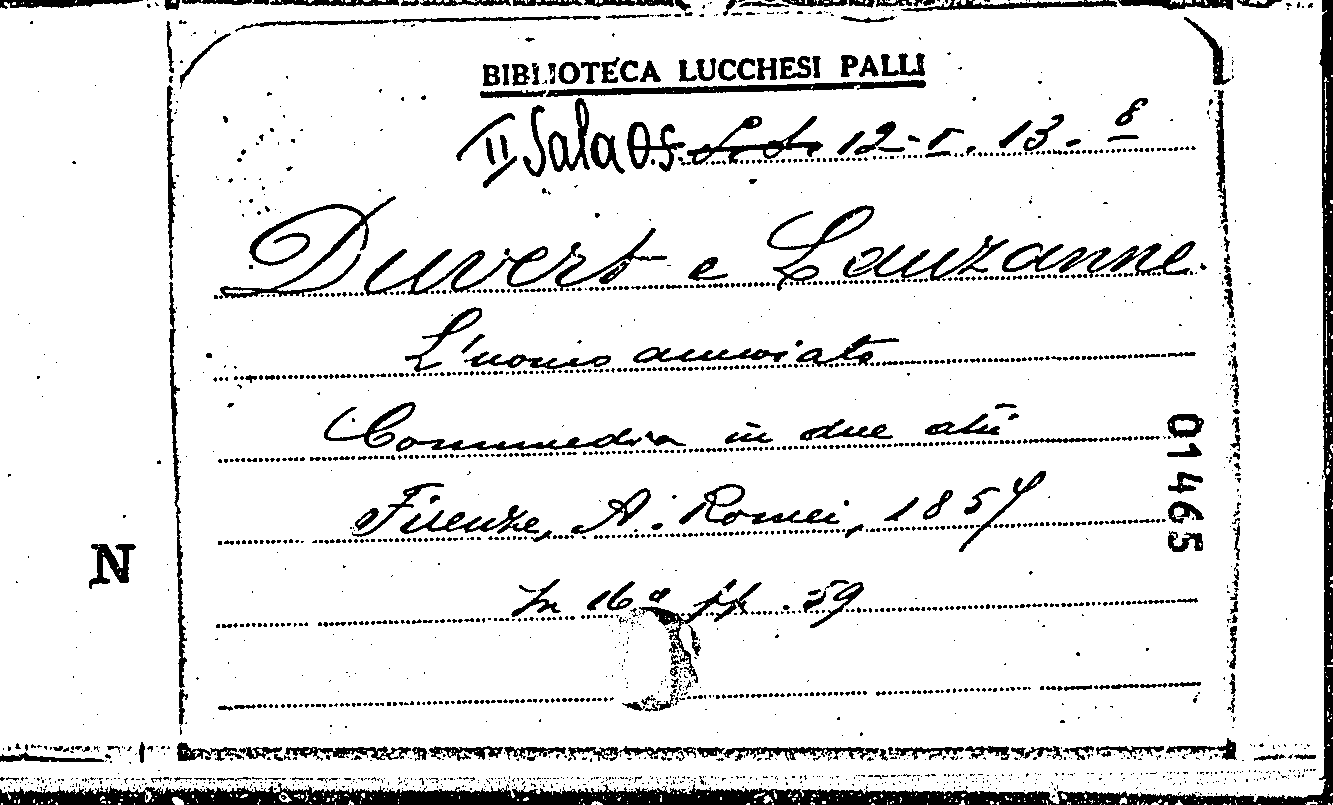 BIBLIOTECA LUCCHESI PALLI
II Sala OS. 12-I. 13. 8
Duvert e Lauzanne.
L'uomo annoiato
Commedia in due atti
Firenze, A. Romei, 1857
In 16º pp. 59
01465
N